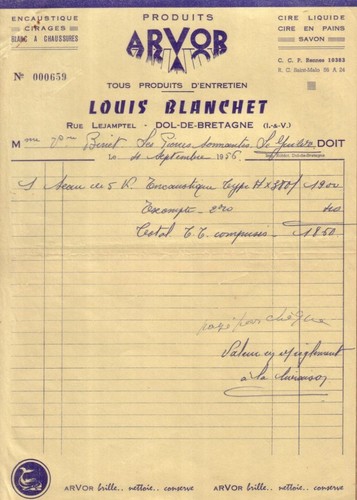 PRODUITS
ENCAUSTIQUE
CIRAGES
BLANC A CHAUSSURES
ARVOR
CIRE LIQUIDE
CIRE EN PAINS
SAVON
C. C. P. Rennes 10383
R. C. Saint-Malo 98 A 24
No 000659
TOUS PRODUITS D'ENTRETIEN
LOUIS BLANCHET
RUE LEJAMPTEL - DOL-DE-BRETAGNE (I.-&-V.)
Mme Vve Benet DOIT
Le 4 Septembre 1956
1 Seau de 5 K. Encaustique Type H x 380
Escompte
Total T.T. comprises 1850
payé par chèque
Valeur en règlement
à la livraison
ARVOR brille.. nettoie.. conserve
ARVOR brille.. nettoie.. conserve